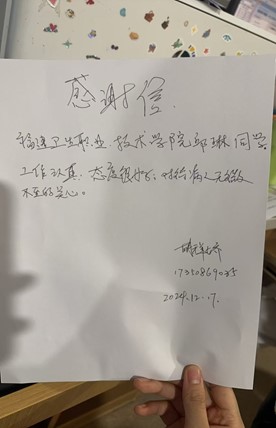 感谢信
福建卫生职业技术学院邱琳同学
工作认真,态度很好,对给病人无微
不至的关心。
17350869035
2024.12.17.